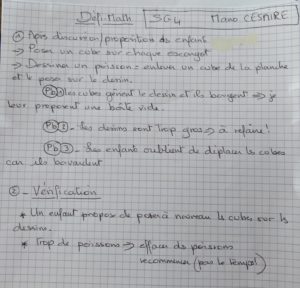 Défi-Math | SG4 | Mano CÉSAIRE
① Après discussion/proposition des enfants
→ Poser un cube sur chaque escargot
→ Dessiner un poisson = enlever un cube de la planche
et le pose sur le dessin.
Pb 1 les cubes gênent le dessin et ils bougent ⇒ je
leur propose une boîte vide.
Pb 2 - les dessins sont trop gros ⇒ à refaire !
Pb 3 - Les enfants oublient de déplacer les cubes
car ils bavardent
② - Vérification
* Un enfant propose de poser à nouveau les cubes sur les
dessins.
* Trop de poissons ⇒ effacer des poissons
recommencer (pas le temps!)